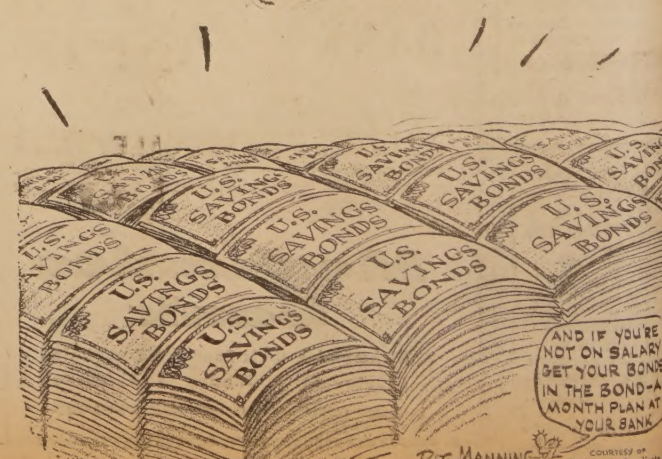 U.S.
SAVINGS
BONDS
U.S.
SAVINGS
BONDS
U.S.
SAVINGS
BONDS
U.S.
SAVINGS
BONDS
U.S.
SAVINGS
BONDS
U.S.
SAVINGS
BONDS
U.S.
SAVINGS
BONDS
U.S.
SAVINGS
BONDS
U.S.
SAVINGS
BONDS
AND IF YOU'RE
NOT ON SALARY
GET YOUR BONDS
IN THE BOND-A
MONTH PLAN AT
YOUR BANK
MANNING
COURTESY OF